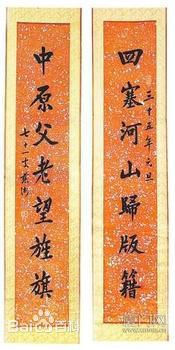 四塞河山歸版籍
三十五年元旦
中原父老望旌旗
七十一叟
Bai
百科